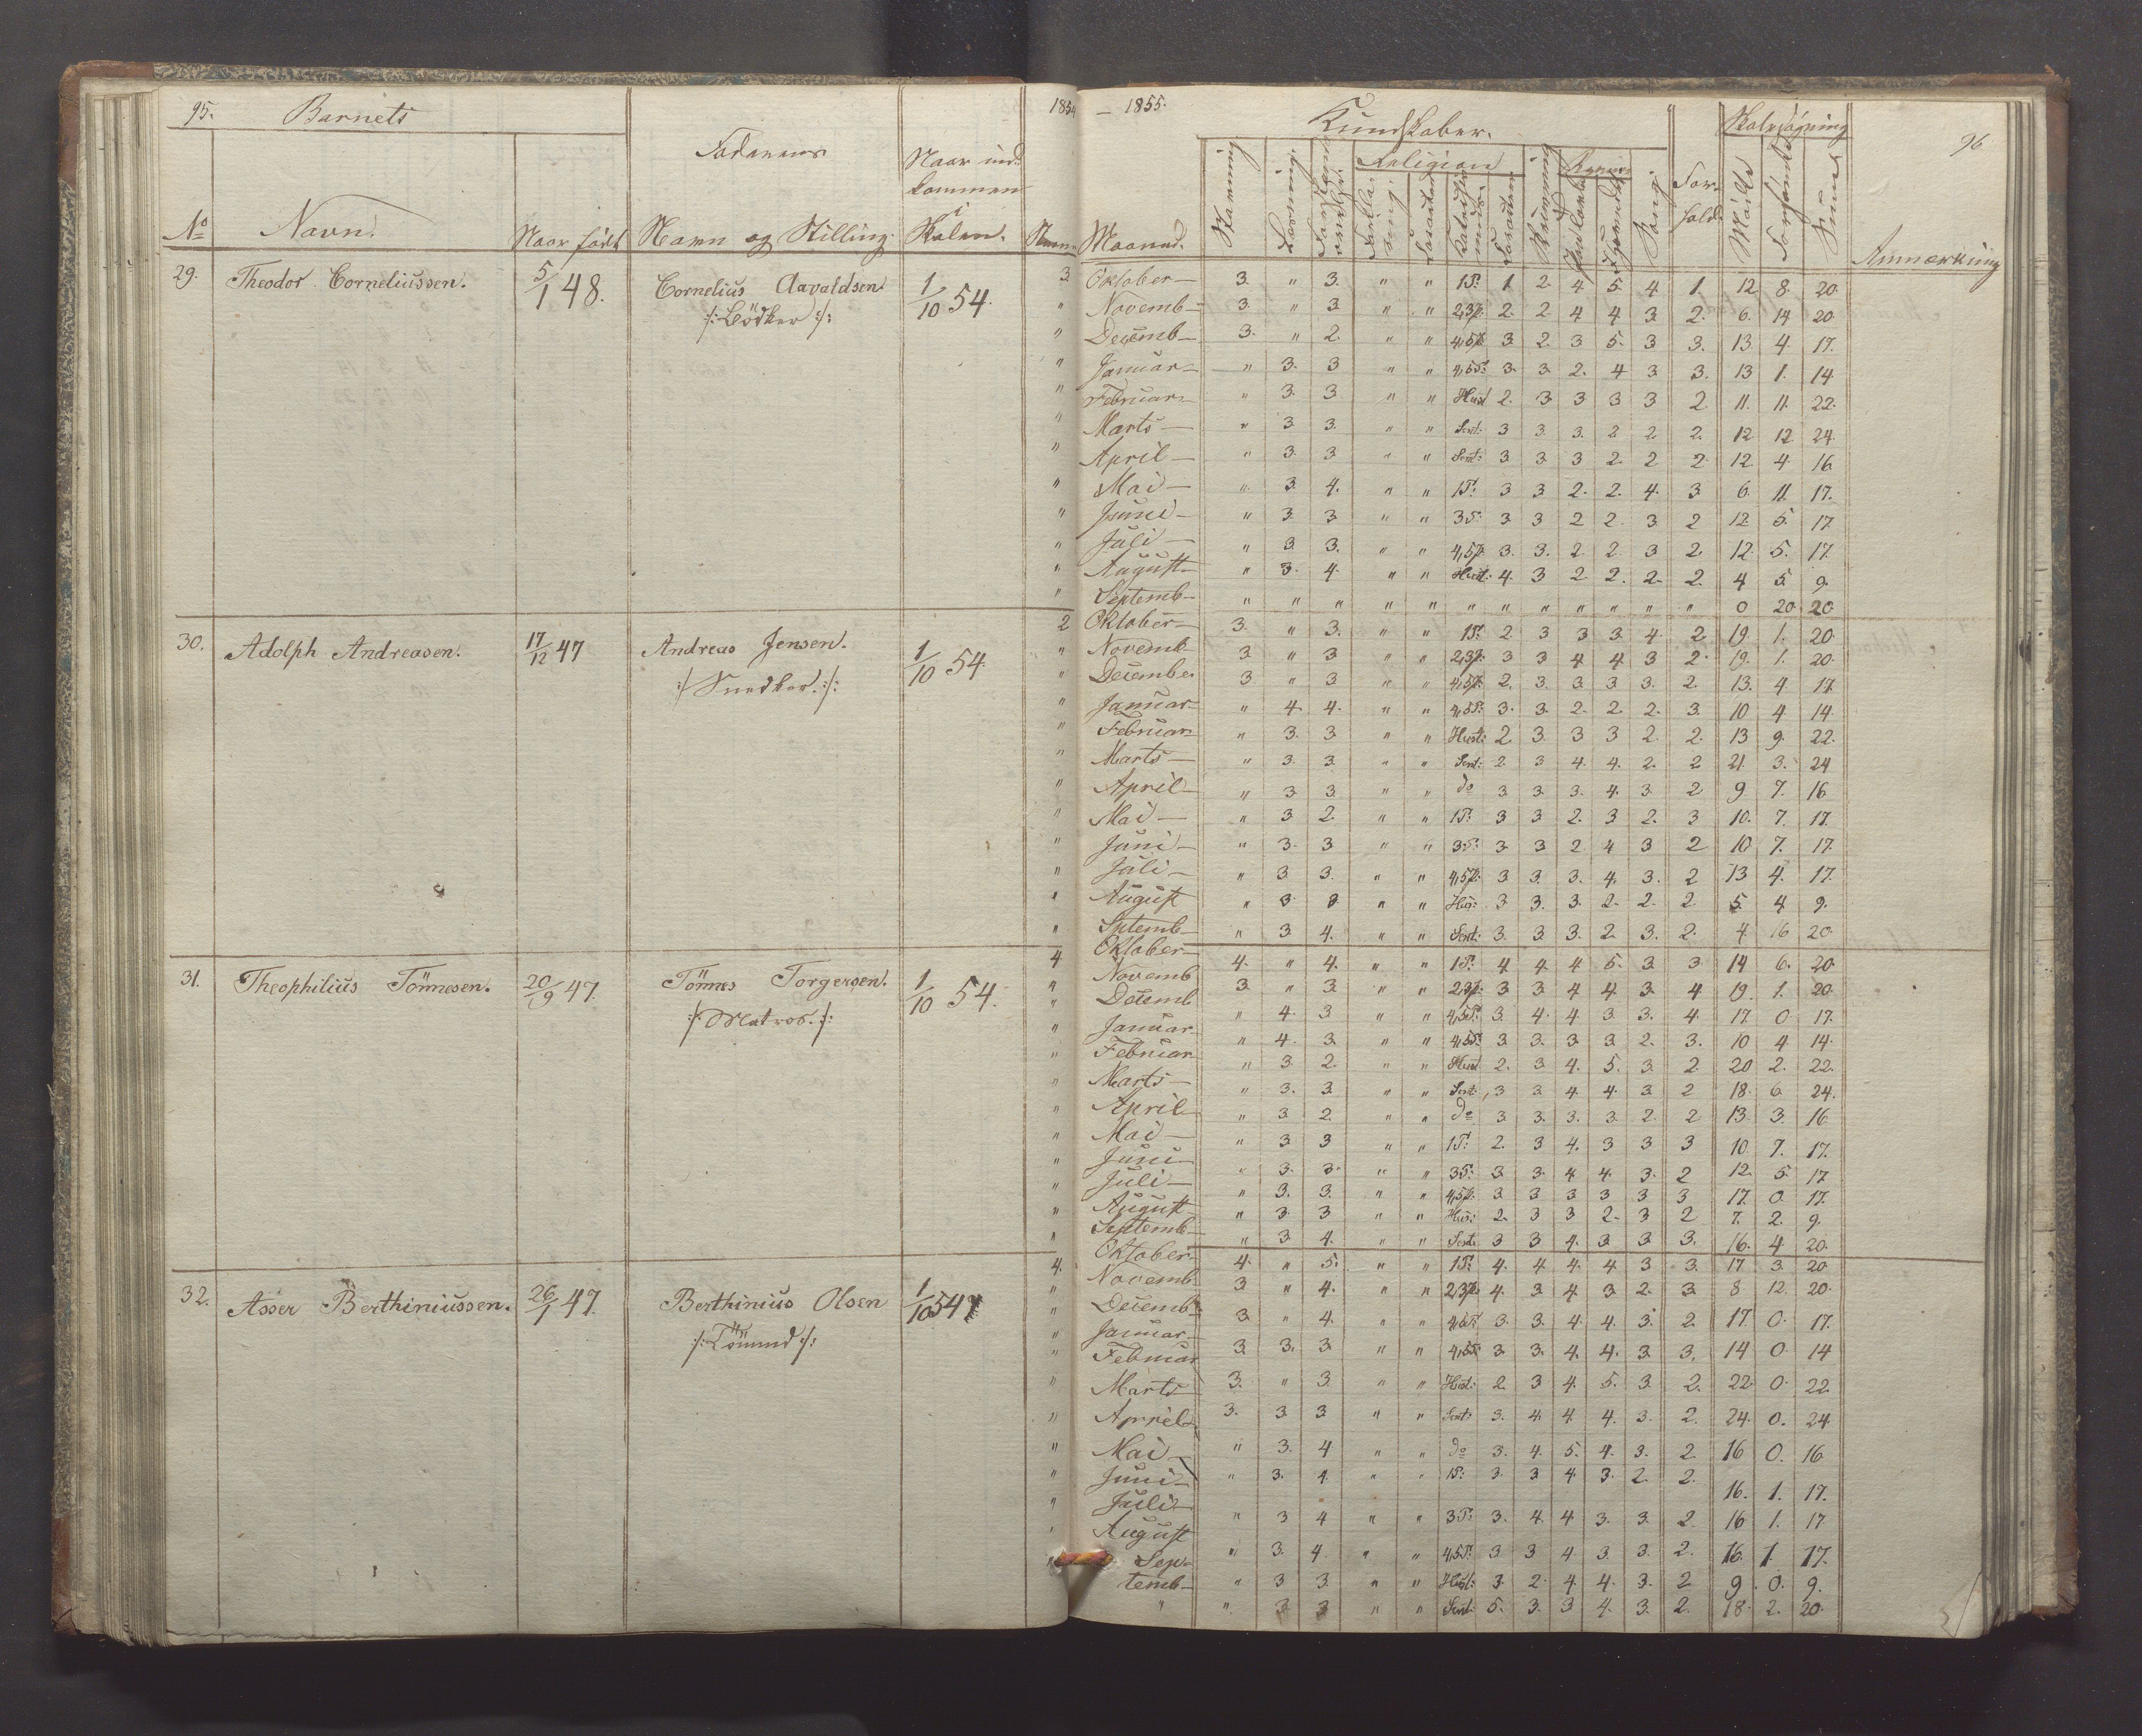 95. Barnets 1854 — 1855. Kundskaber. Skolesøgning 96
Faderens Naar ind- Religion For-
kommen hold.
i
No Navn. Naar født Navn og Stilling. Skolen. Maaned. Anmærkning
29. Theodor Corneliussen. 5/1 48. Cornelius Aavaldsen 1/10 54. 3 Oktober — 3. " 3. " " 1P: 1 2 4 5. 4 1. 12 8. 20.
:/: Bödker :/: " Novemb — 3. " 3 " " 2,3p. 2. 2 4 4 3 2. 6. 14 20.
" Decemb — 3. " 2. " " 4,5p. 3 2. 3 5. 3 3. 13. 4. 17.
" Januar — " 3. 3 " " 4,5P: 3. 3 2. 4 3 3. 13 1. 14
" Februar — " 3. 3. " " Hust 2. 3 3 3 3 2. 11. 11. 22.
" Marts — " 3 3. " " Sent: 3 3 3. 2 2. 2. 12 12 24.
" April — " 3. 3 " " Sent: 3 3 3 2. 2 2. 12. 4. 16
" Mai — " 3. 4. " " 1P: 3 3 2. 2. 4. 3 6. 11. 17.
" Juni — " 3. 3 " " 3P: 3 3 2 2. 3 2 12. 5. 17.
" Juli — " 3. 3. " " 4,5p. 3. 3. 2. 2. 3 2. 12. 5. 17.
" August — " 3. 4. " " Hust: 4. 3 2. 2. 2. 2. 4 5 9.
" Septemb — " " " " " " " " " " " " 0 20. 20.
30. Adolph Andreasen. 17/12 47 Andreas Jensen. 1/10 54. 2 Oktober — 3. " 3. " " 1P: 2. 3 3 3. 4. 2. 19. 1. 20.
:/: Snedker. :/: " Novemb — 3. " 3 " " 2,3p. 3 3 4 4 3 2. 19. 1. 20.
" December 3 " 3 " " 4,5p. 2. 3. 3. 3 3. 2. 13. 4 17.
" Januar — " 4. 4. " " 4,5P: 3. 3. 2. 2 2. 3. 10 4 14.
" Februar " 3. 3 " " Hust: 2. 3. 3 3 2 2. 13 9. 22.
" Marts — " 3. 3. " " Sent: 2. 3 4. 4. 2. 2 21. 3. 24
" April — " 3 3 " " do 3 3. 3. 4. 3. 2 9 7. 16
" Mai — " 3 2. " " 1P: 3 3 2. 3 2. 3 10. 7. 17.
" Juni — " 3. 3 " " 3P: 3 3 2. 4 3 2 10 7. 17.
" Juli — " 3 3. " " 4,5p. 3 3 3. 4. 3. 2 13 4. 17.
" August " 3 3 " " Hus: 3 3. 3. 2. 2. 2 5. 4 9.
" Sptemb — " 3 4. " " Sent: 3. 3. 3. 2 3. 2. 4 16 20.
31. Theophilius Tönnesen. 20/9 47. Tönnes Torgersen. 1/10 54. 4 Oktober — 4. " 4. " " 1P: 4 4. 4 5. 3 3 14 6. 20.
:/: Matros. :/: " Novemb 3. " 3. " " 2,3p: 3 3 4 4 3. 4 19. 1. 20.
" Decemb " 4. 3 " " 4,5P: 3. 4. 4 3 3. 4. 17. 0 17.
" Januar — " 4. 3. " " 4,5P: 3 3. 3. 3 2. 3. 10 4 14.
" Februar " 3 2. " " Hust 2. 3 4. 5. 3. 2. 20 2. 22.
" Marts — " 3. 3. " " Sent: 3 3 4 4. 3 2 18. 6 24.
" April — " 3 2. " " do 3 3. 3. 3 2. 2 13. 3. 16
" Mai — " 3 3 " " 1P: 2. 3 4. 3 3 3 10. 7. 17.
" Juni — " 3. 3. " " 3P: 3 3. 4 4. 3. 2 12. 5. 17
" Juli — " 3. 3. " " 4,5p. 3 3 3 3 3 3 17. 0. 17.
" August — " 3 3 " " Hus: 2. 3 3 2. 3 2 7. 2. 9.
" Septemb — " 3 4. " " Sent: 3 3 4. 3 3 3. 16. 4 20.
32. Asser Berthiniussen. 26/1 47. Berthinius Olsen 1/10 54 4. Oktober — 4. " 5. " " 1P: 4. 4 4. 4 3 3. 17 3. 20
" Novemb. 3 " 4. " " 2,3p. 4. 3 4. 3 2. 3 8 12. 20.
" Decemb — 3. " 4. " " 3. 3. 4. 4. 3. 2. 17. 0. 17.
" Januar — 3 3. 3. " " 4,5P: 3. 3. 4. 4. 3. 3. 14 0. 14
" Februar 3. " 3. " " Hust: 2. 3 4. 5. 3. 2. 22. 0. 22.
" Marts — 3. 3. 3 " " Sent: 3. 4. 4 4. 3. 2. 24. 0. 24
" Aprril — " 3. 4 " " do 3. 4. 5. 4. 3. 2 16 0. 16
" Mai — " 3. 4. " " 1P: 3. 3 4. 3. 2. 2. 16. 1. 17.
" Juni — " 3 4 " " 3P: 3. 4. 4 3. 3. 2. 16 1. 17
" Juli — " 3. 4. " " 4,5P: 3 3 4 3. 3. 2. 16. 1. 17.
" August " 3 3. " " Hust: 3. 2. 4. 4. 3. 2 9. 0. 9.
" Sep-
temb — " 3 3 " " Sent. 5. 3. 3 4. 3. 2. 18. 2. 20.